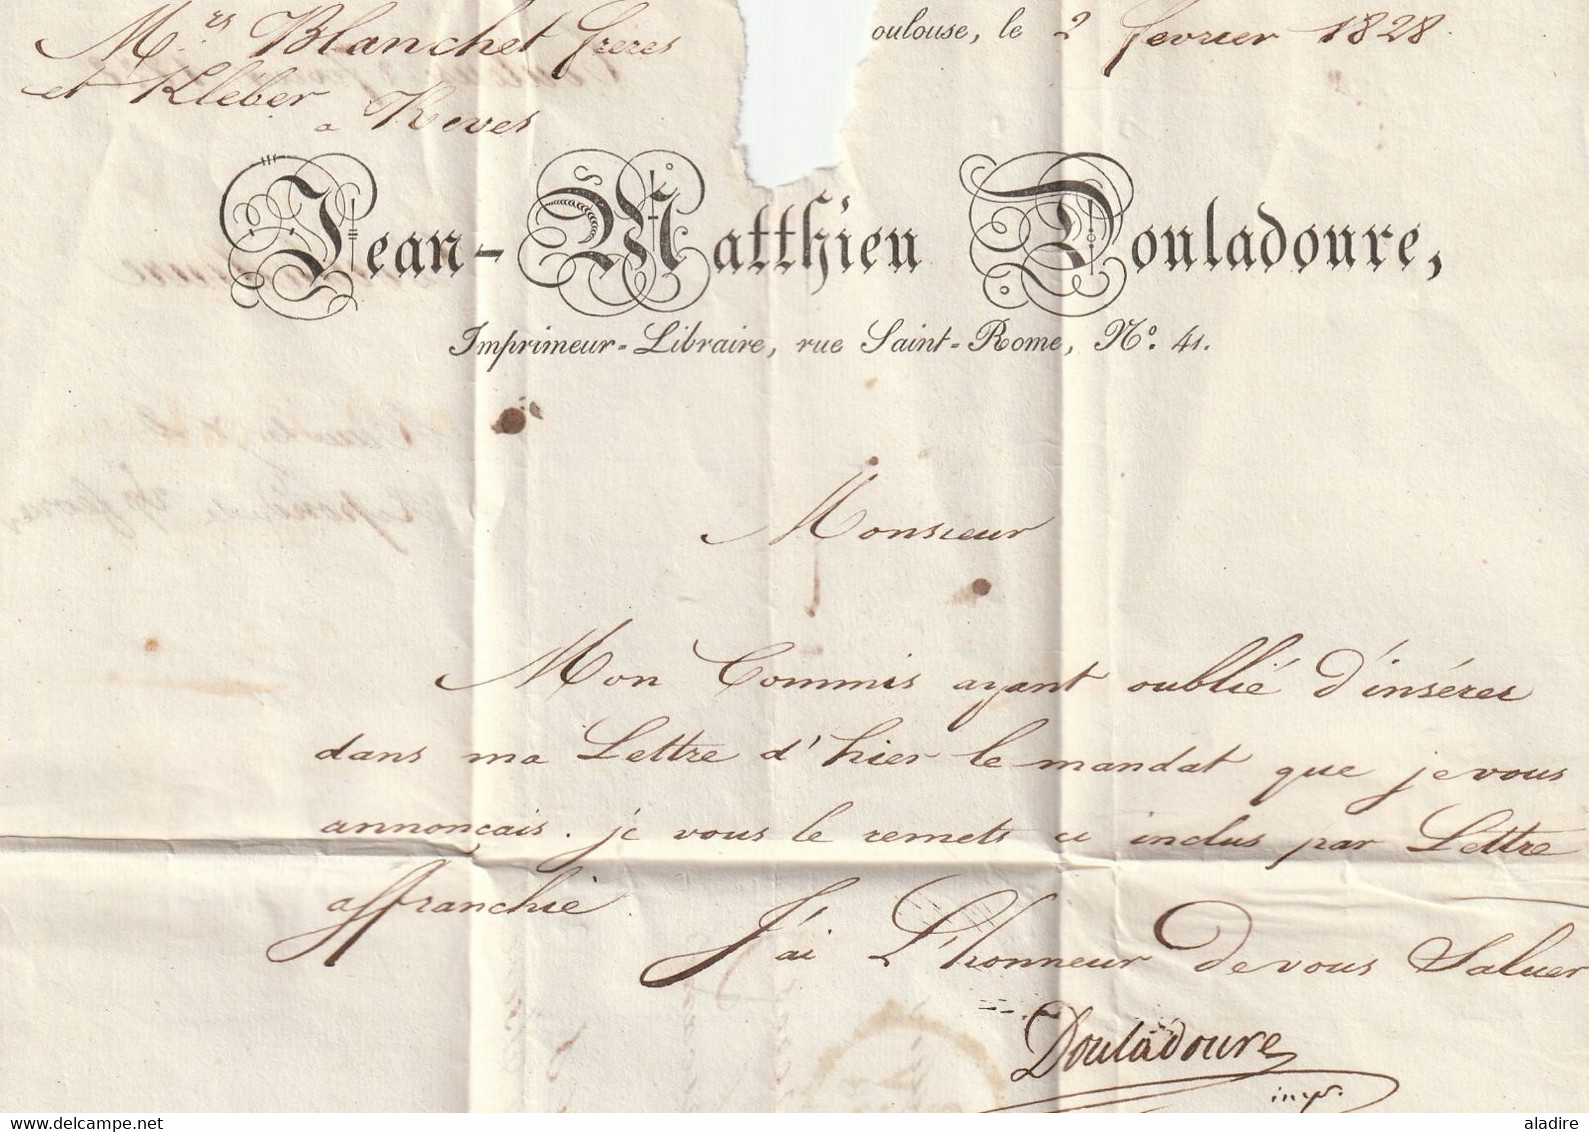 Mrs Blanchet freres
et Kleber
a Reves
oulouse, le 2 fevrier 1828.
Jean-Matthieu Douladoure,
Imprimeur-Libraire, rue Saint-Rome, N.° 41.
Monsieur
Mon Commis ayant oublié d'insérer
dans ma Lettre d'hier le mandat que je vous
annonçais. je vous le remets ci inclus par Lettre
affranchie.
J'ai L'honneur De vous Saluer
Douladoure
impr.
aladire